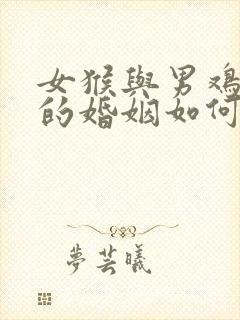 女猴與男鸡
的婚姻如何
夢芸曦